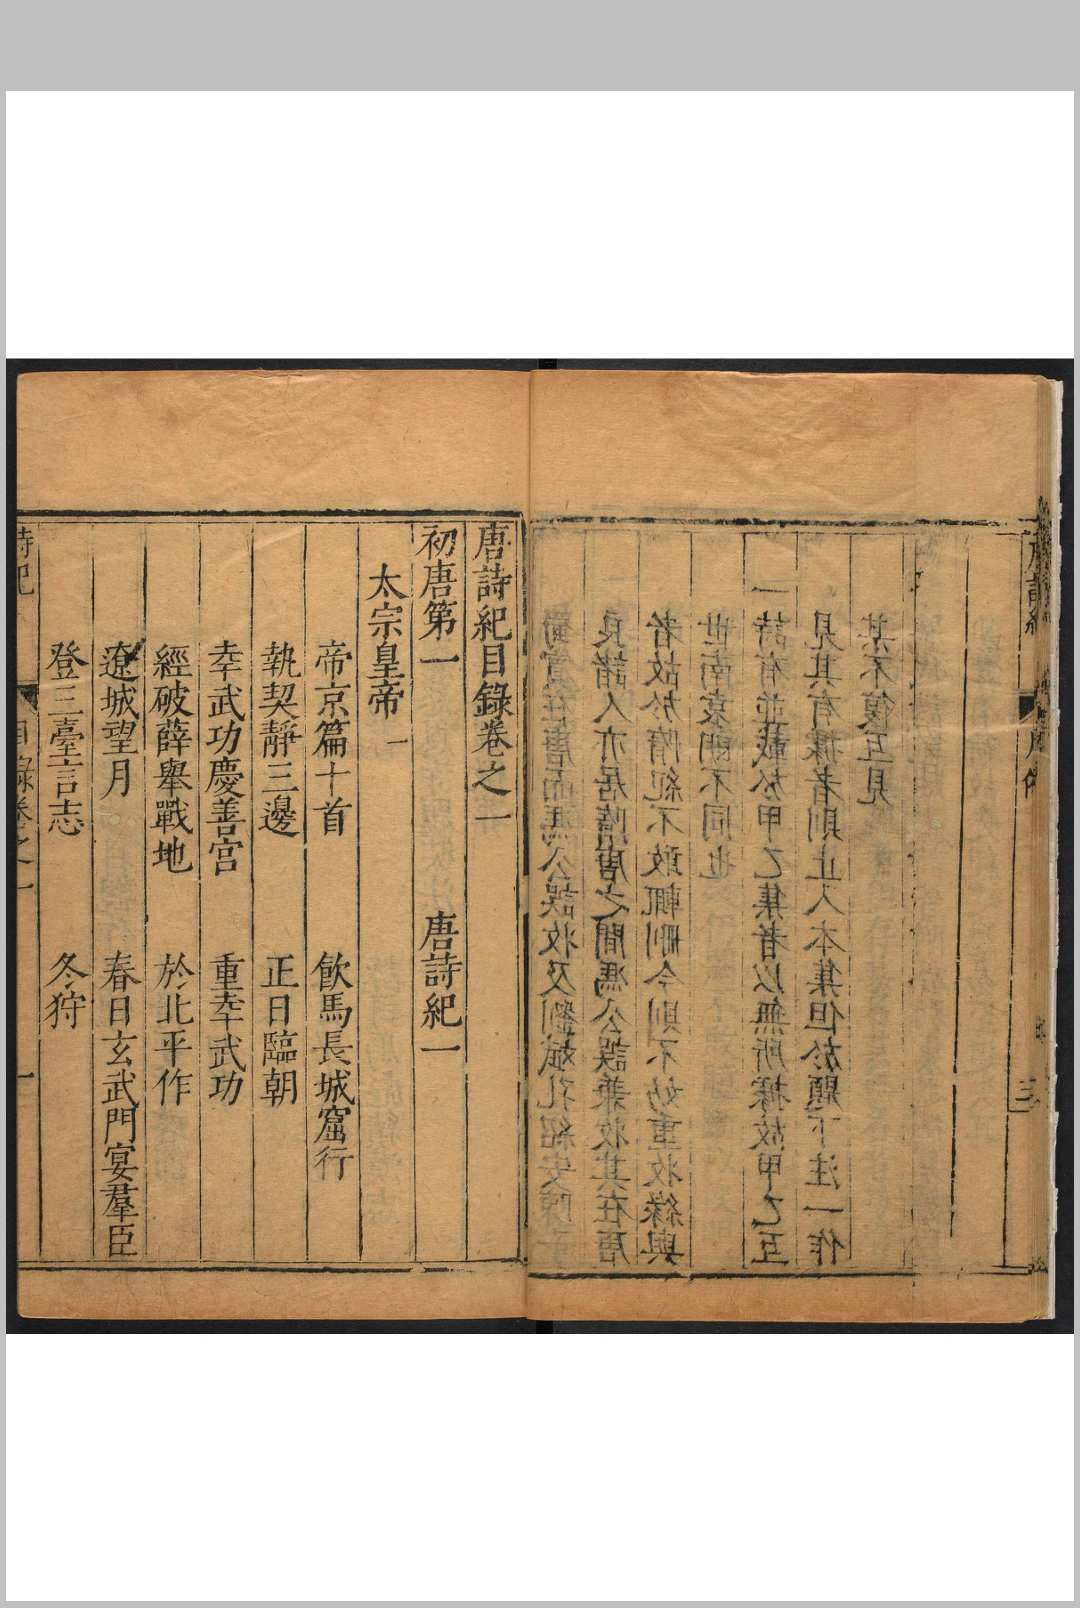 唐詩紀 凡例 三
在唐而馮公誤收及劉斌孔紹安陳子
良諸人亦居隋唐之間馮公誤兼收其在唐
者故於隋紀不敢輒刪今則不妨重收緣與
世南袁朗不同也
一詩有並載於甲乙集者以無所據故甲乙互
見其有據者則止入本集但於題下注一作
某不復互見
唐詩紀目錄卷之一
初唐第一 唐詩紀一
太宗皇帝一
帝京篇十首 飲馬長城窟行
執契靜三邊 正日臨朝
幸武功慶善宮 重幸武功
經破薛舉戰地 於北平作
遼城望月 春日玄武門宴羣臣
登三臺言志 冬狩
詩紀 目錄卷之一 一